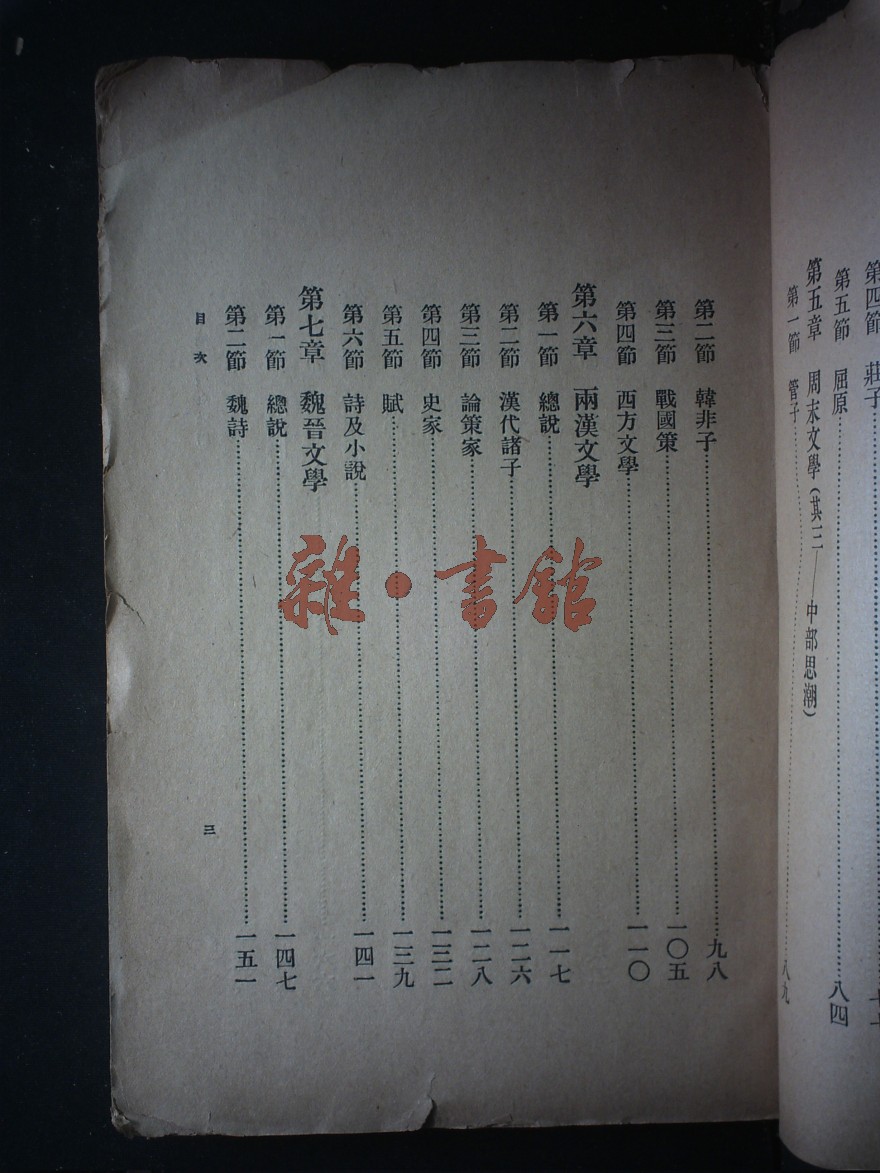 第四節 莊子
第五節 屈原……八四
第五章 周末文學(其三——中部思潮)
第一節 管子……八九
第二節 韓非子……九八
第三節 戰國策……一〇五
第四節 西方文學……一一〇
第六章 兩漢文學
第一節 總說……一一七
第二節 漢代諸子……一二六
第三節 論策家……一二八
第四節 史家……一三二
第五節 賦……一三九
第六節 詩及小說……一四一
第七章 魏晉文學
第一節 總說……一四七
第二節 魏詩……一五一
目次
三
雜·書館